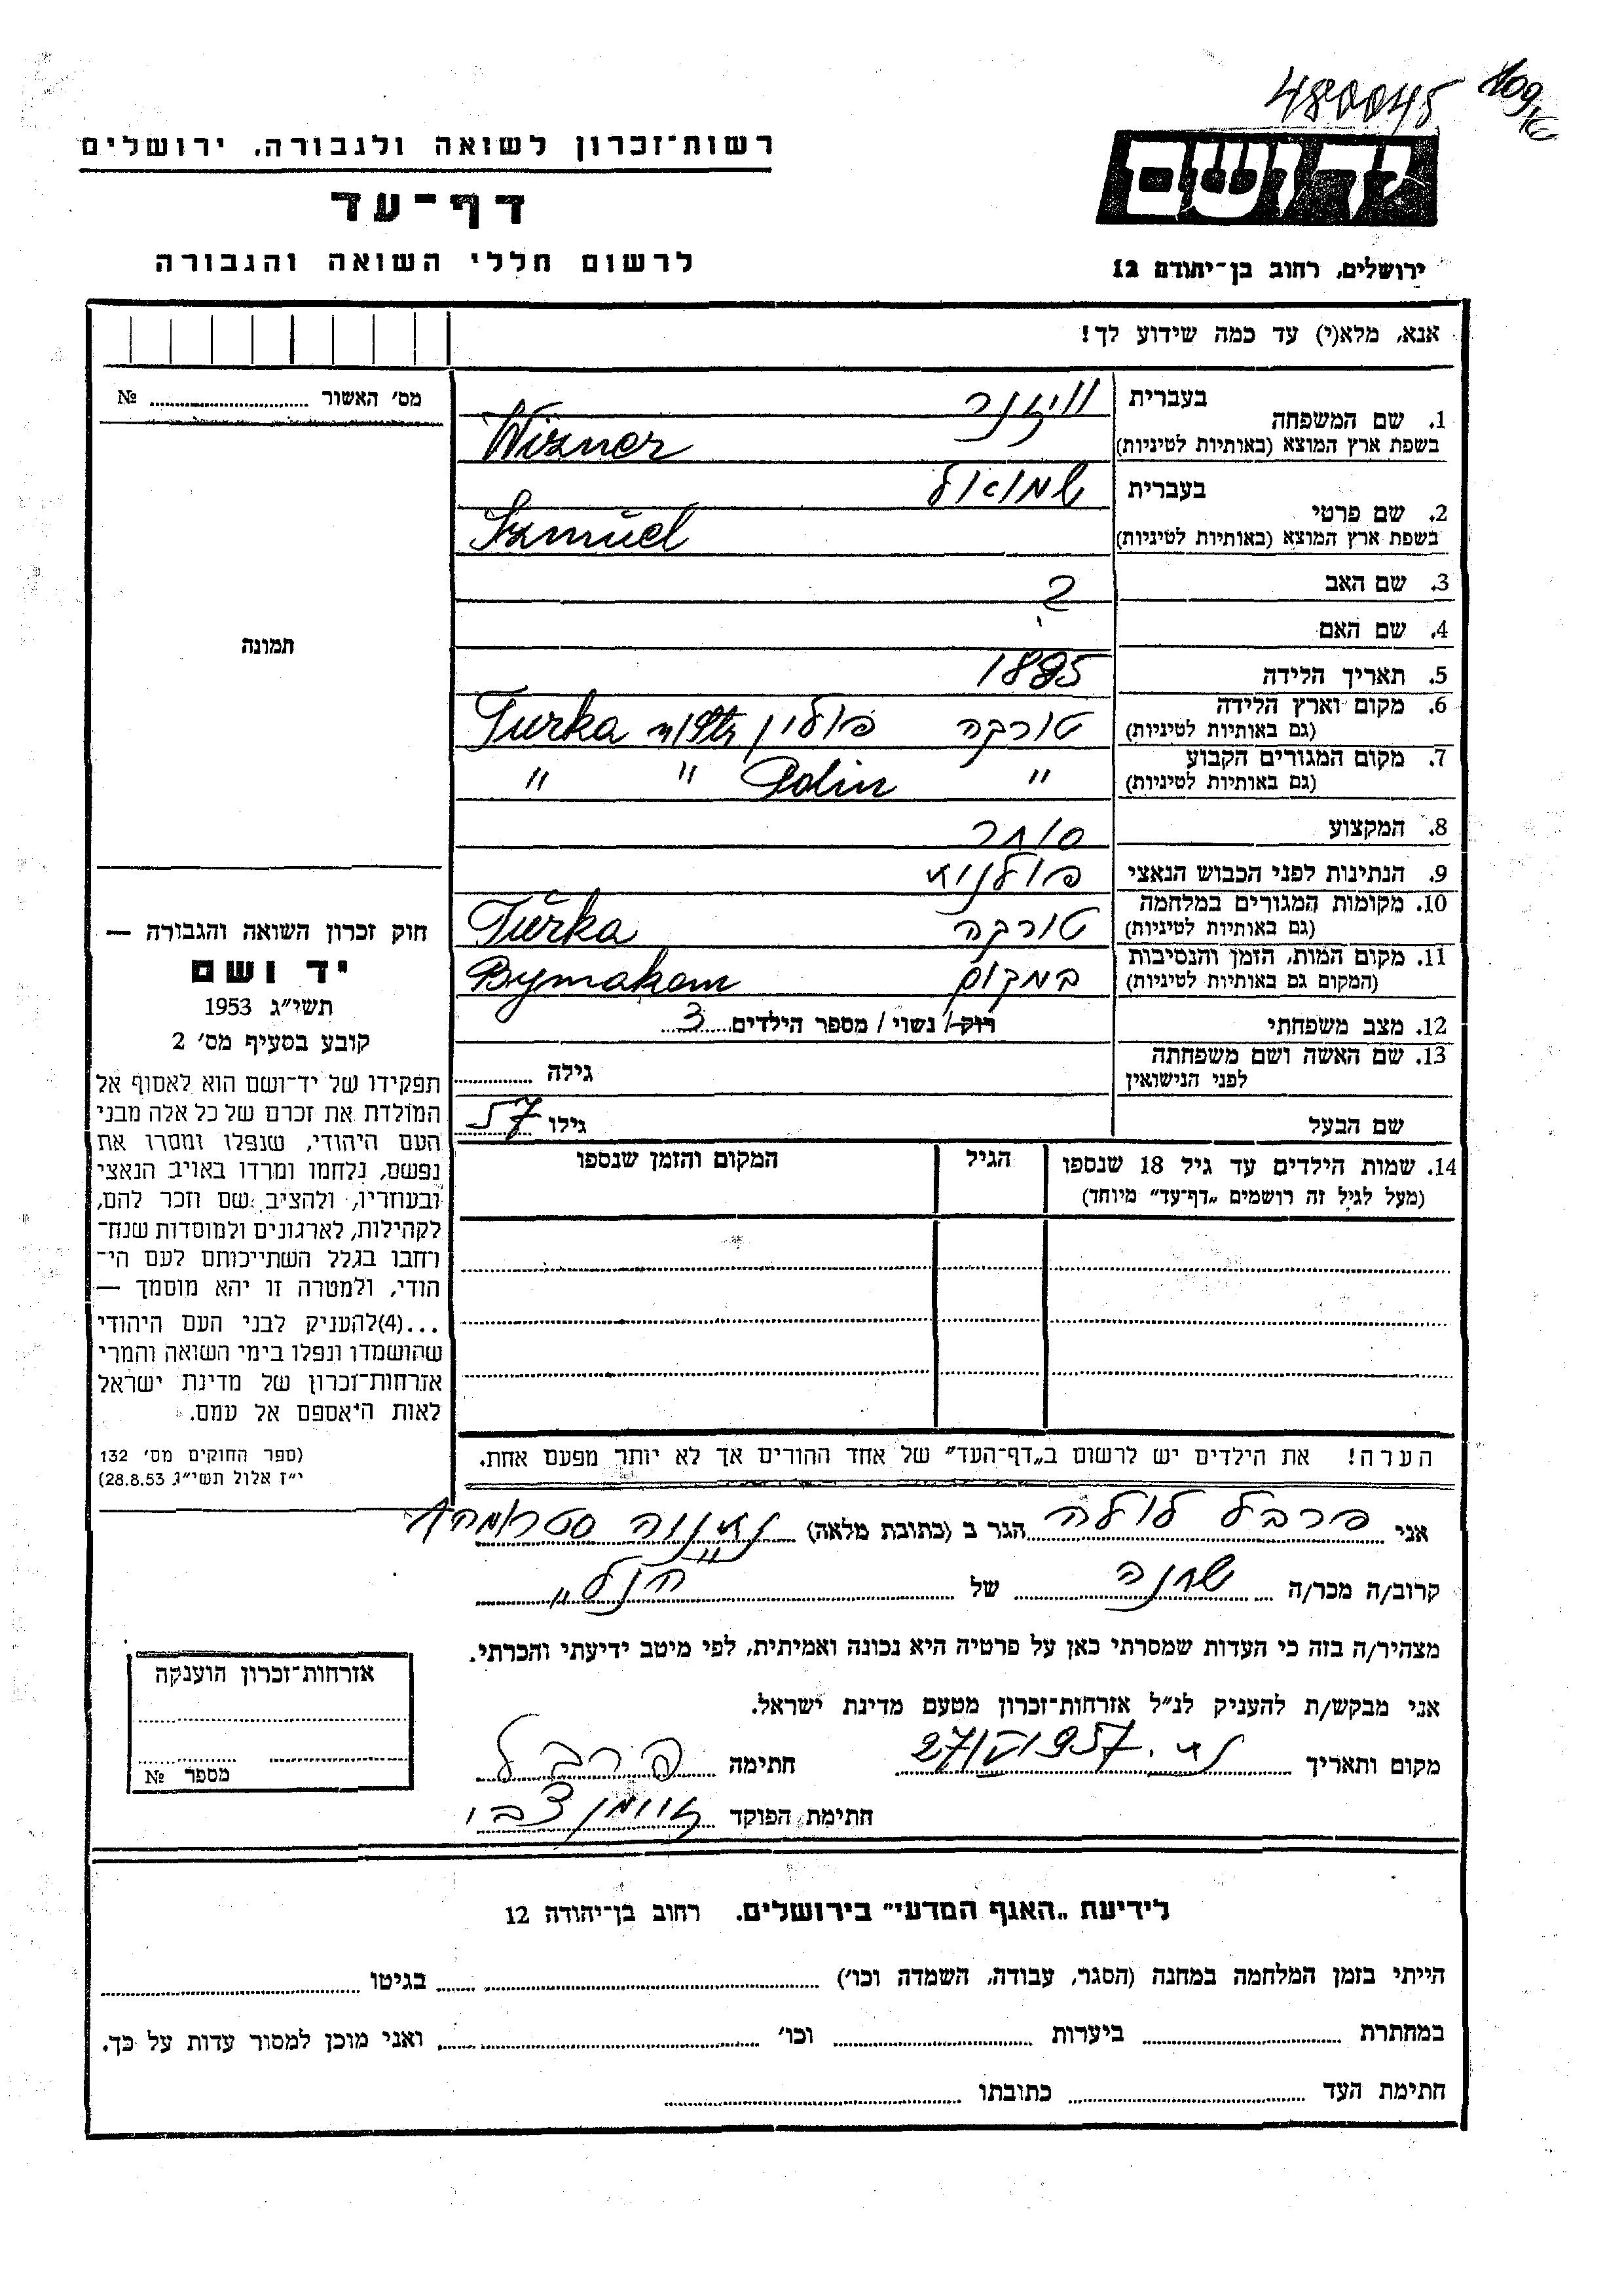 480045
רשות־זכרון לשואה ולגבורה, ירושלים
יד ושם
דף־עד
לרשום חללי השואה והגבורה
ירושלים, רחוב בן־יהודה 12
אנא, מלא(י) עד כמה שידוע לך!
מס׳ האשור № 
1. שם המשפחה
בעברית וויזנר
בשפת ארץ המוצא (באותיות לטיניות) Wizner
2. שם פרטי
בעברית שמואל
בשפת ארץ המוצא (באותיות לטיניות) Szmuel
3. שם האב ?
4. שם האם
תמונה
5. תאריך הלידה 1885
6. מקום וארץ הלידה (גם באותיות לטיניות) טורקה פולין Turka
7. מקום המגורים הקבוע (גם באותיות לטיניות) " Polin " "
8. המקצוע סוחר
9. הנתינות לפני הכבוש הנאצי פולנית
10. מקומות המגורים במלחמה (גם באותיות לטיניות) טורקה Turka
11. מקום המות, הזמן והנסיבות (המקום גם באותיות לטיניות) במקום Bymakom
12. מצב משפחתי רוק/ נשוי / מספר הילדים 3
13. שם האשה ושם משפחתה לפני הנישואין גילה
שם הבעל גילו 57
14. שמות הילדים עד גיל 18 שנספו הגיל המקום והזמן שנספו
(מעל לגיל זה רושמים „דף־עד” מיוחד)
חוק זכרון השואה והגבורה —
יד ושם
תשי״ג 1953
קובע בסעיף מס׳ 2
תפקידו של יד־ושם הוא לאסוף אל
המולדת את זכרם של כל אלה מבני
העם היהודי, שנפלו ומסרו את
נפשם, נלחמו ומרדו באויב הנאצי
ובעוזריו, ולהציב שם וזכר להם,
לקהילות, לארגונים ולמוסדות שנח־
רחבו בגלל השתייכותם לעם הי־
הודי, ולמטרה זו יהא מוסמך —
...(4)להעניק לבני העם היהודי
שהושמדו ונפלו בימי השואה והמרי
אזרחות־זכרון של מדינת ישראל
לאות היאספם אל עמם.
(ספר החוקים מס׳ 132
י״ז אלול תשי״ג 28.8.53)
הערה! את הילדים יש לרשום ב„דף־העד” של אחד ההורים אך לא יותר מפעם אחת.
אני פרבל לולה הגר ב (כתובת מלאה) נתניה
קרוב/ה מכר/ה שכנה של הנ"ל
מצהיר/ה בזה כי העדות שמסרתי כאן על פרטיה היא נכונה ואמיתית, לפי מיטב ידיעתי והכרתי.
אני מבקש/ת להעניק לנ״ל אזרחות־זכרון מטעם מדינת ישראל.
מקום ותאריך חתימה פרבל ל
חתימת הפוקד
אזרחות־זכרון הוענקה
מספר №
לידיעת „האגף המדעי” בירושלים. רחוב בן־יהודה 12
הייתי בזמן המלחמה במחנה (הסגר, עבודה, השמדה וכו׳) בגיטו
במחתרת ביערות וכו׳ ואני מוכן למסור עדות על כך.
חתימת העד כתובתו